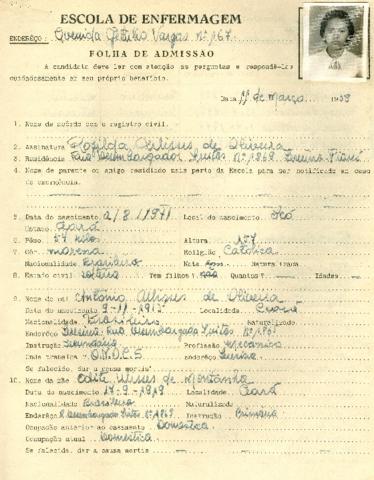 ESCOLA DE ENFERMAGEM
ENDERÊÇO: Avenida Getulio Vargas Nº 167
FOLHA DE ADMISSÃO
A candidata deve ler com atenção as perguntas e respondê-las
cuidadosamente em seu próprio benefício.
Data de Março
1. Nome de acôrdo com o registro civil.
2. Assinatura Ulisses de Oliveira
3. Residência Rua Desembargador Freitas Nº 1868
4. Nome de parente ou amigo residindo mais perto da Escola para ser notificado em caso
de emergência.
5. Data do nascimento Local do nascimento Icó
Estado Ceará
6. Pêso 54 kilos Altura 157
7. Côr morena Religião Católica
Nacionalidade Brasileira Nata Naturalizada
8. Estado civil solteira Tem filhos não Quantos Idades
9. Nome do pai Antônio Ulisses de Oliveira
Data do nascimento Localidade Ceará
Nacionalidade Brasileira Naturalizado
Enderêço Rua Desembargador Freitas Nº 1868
Instrução Profissão Mecanico
Onde trabalha Enderêço
Se falecido, dar a causa mortis
10. Nome da mãe Edite Ulisses de
Data do nascimento Localidade Ceará
Nacionalidade Brasileira Naturalizado
Enderêço R. Desembargador Freitas Nº 1868 Instrução Primária
Ocupação anterior ao casamento Doméstica
Ocupação atual Doméstica
Se falecida, dar a causa mortis